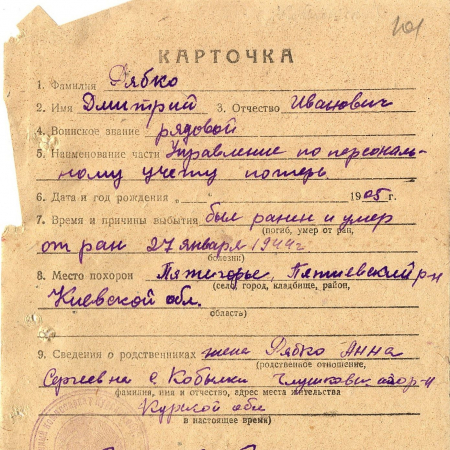 101
КАРТОЧКА
1. Фамилия Рябко
2. Имя Дмитрий 3. Отчество Иванович
4. Воинское звание рядовой
5. Наименование части Управление по персональ-
ному учету потерь.
6. Дата и год рождения „ 1905 г.
7. Время и причины выбытия был ранен и умер
(погиб, умер от ран,
от ран 27 января 1944г.
болезни)
8. Место похорон Пятегорье, Пятиевский р-н
(село, город, кладбище, район,
Киевской обл.
область)
9. Сведения о родственниках жена Рябко Анна
(родственное отношение,
Сергеевна с. Кобылки Глушковск р-н
фамилия, имя и отчество, адрес места жительства
Курской обл
в настоящее время)